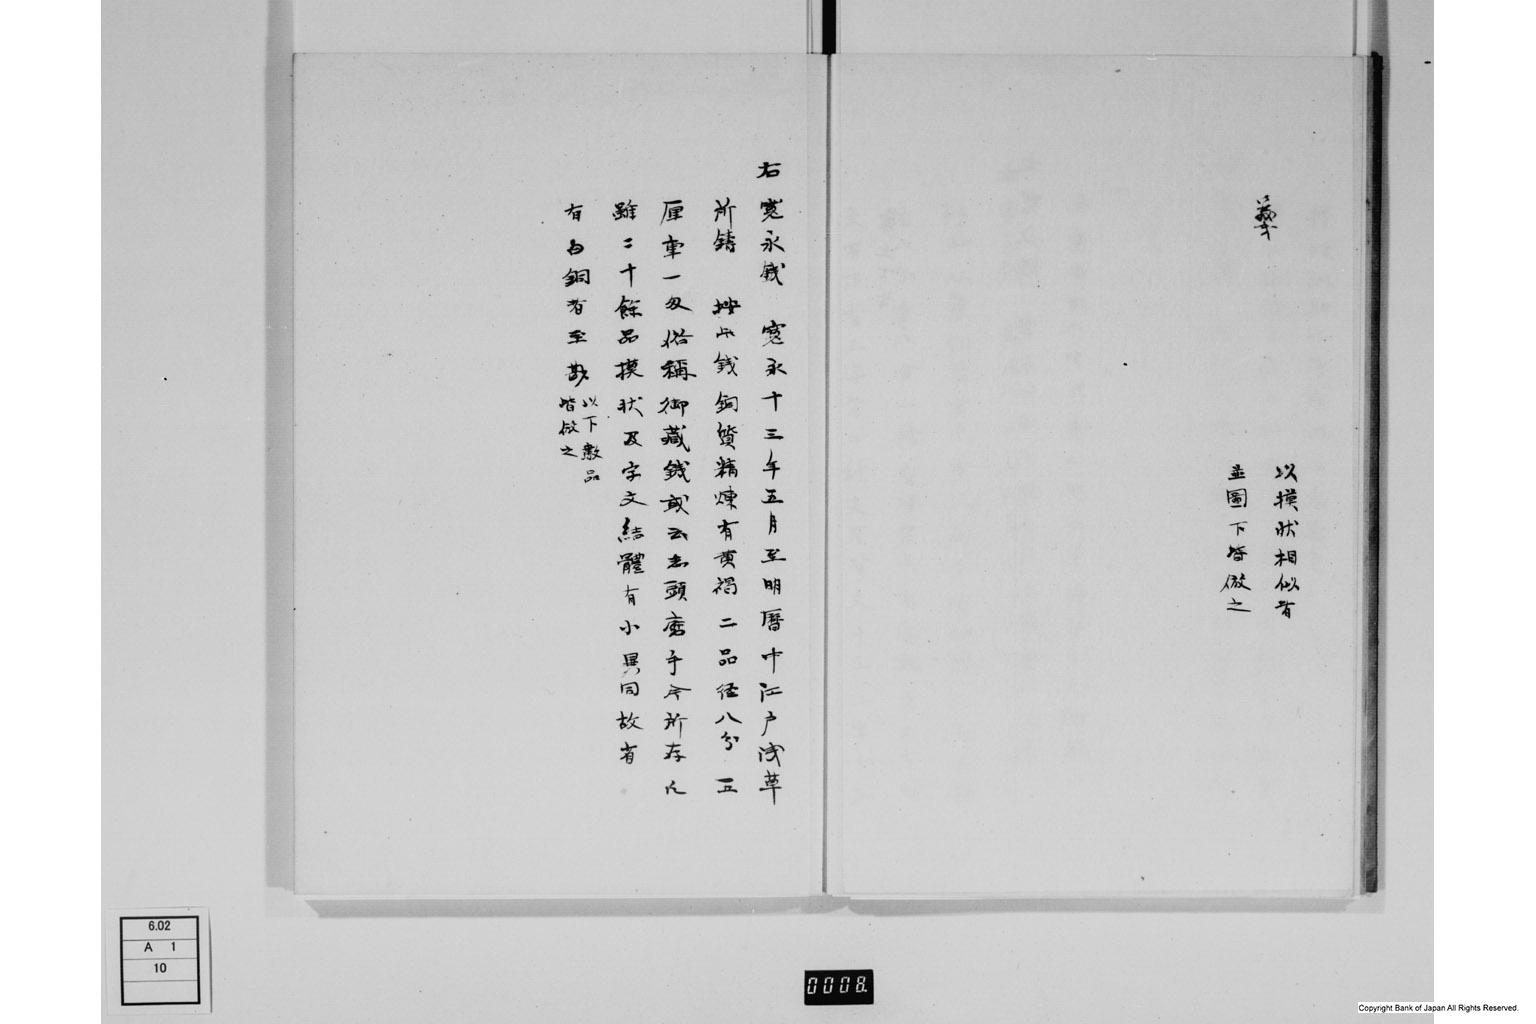 義
以摸状相似者
並圖下皆倣之
右寛永銭　寛永十三年五月至明暦中江戸浅草
所鋳　按此銭銅質精煉有黄褐二品径八分五
厘重一匁俗稱御蔵銭或云志頭磨手今所存凡
雖二十餘品摸状及字文結體有小異同故有
有白銅者至尠
以下數品
皆倣之
6.02
A 1
10
0008.
Copyright Bank of Japan All Rights Reserved.